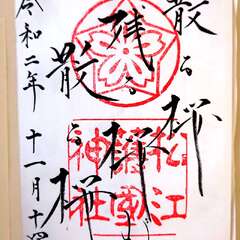 散る桜
残る桜も
散る桜
松江
護國
神社
令和二年 十一月十四